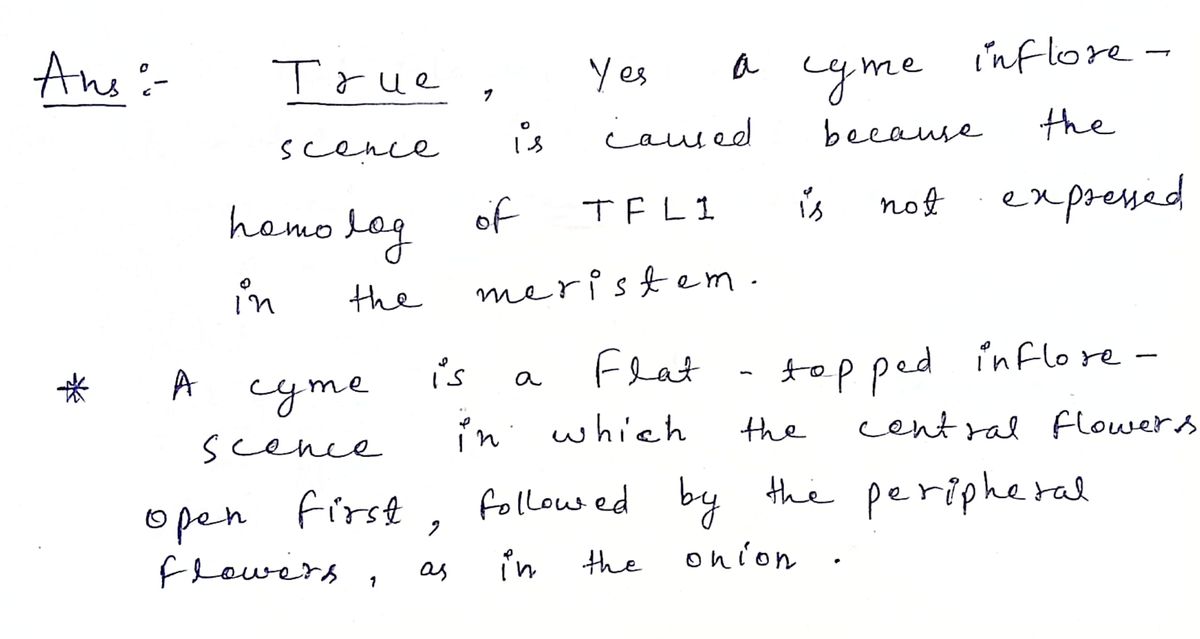 Ans :- True, Yes a cyme inflore-
scence is caused because the
homolog of TFL1 is not expressed
in the meristem.
* A cyme is a flat - topped inflore-
scence in which the central flowers
open first, followed by the peripheral
flowers, as in the onion.